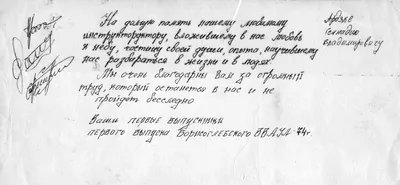 На долгую память нашему любимому
инструкторуктору, вложившему в нас любовь
к небу, частицу своей души, опыта, научившему
нас разбираться в жизни и в людях.
Мы очень благодарны Вам за огромный
труд, который останется в нас и не
пройдет бесследно
Ваши первые выпускники
первого выпуска Борисоглебского ВВАУЛ 74г.
Геннадию
Владимировичу